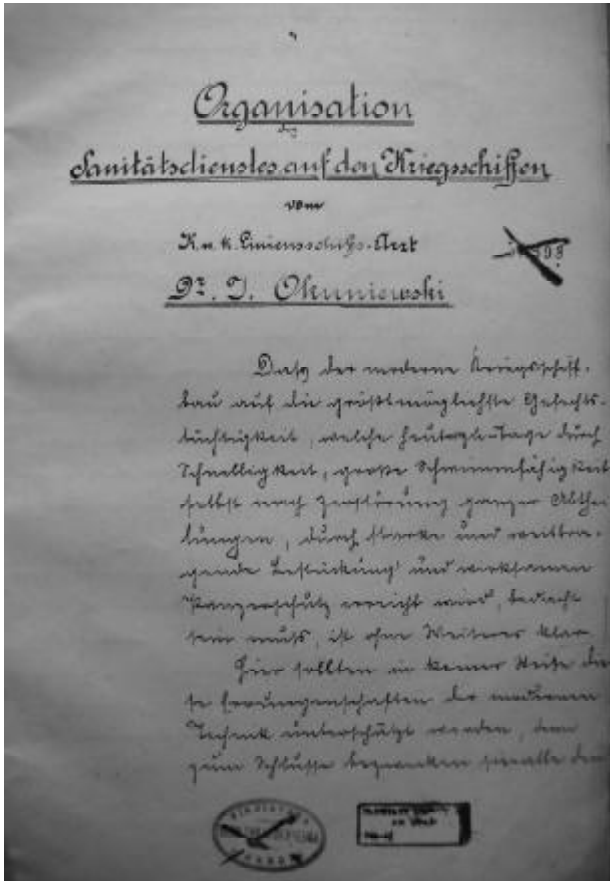 Organisation
des
Sanitätsdienstes auf den Kriegsschiffen
vom
K. u. k. Linienschiffs-Arzt
Dr. J. Okuniewski
Daß der moderne Kriegsschiff-
bau auf die größtmöglichste Gefechts-
tüchtigkeit, welche heutzutage durch
Schnelligkeit, große Schwimmfähigkeit
selbst nach Zerstörung ganzer Abthei-
lungen, durch starke und weittra-
gende Bestückung und wirksamen
Panzerschutz erreicht wird, bedacht
sein muß, ist ohne Weiteres klar.
Hier sollten in keiner Weise die-
se Errungenschaften der modernen
Technik unterschätzt werden, denn
zum Schlusse bezwecken sie alle